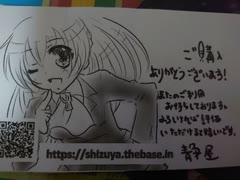 ご購入
ありがとうございます!
またのご利用
お待ちしております。
よろしければ評価
いただけますと嬉しいです。
静屋
https://shizuya.thebase.in